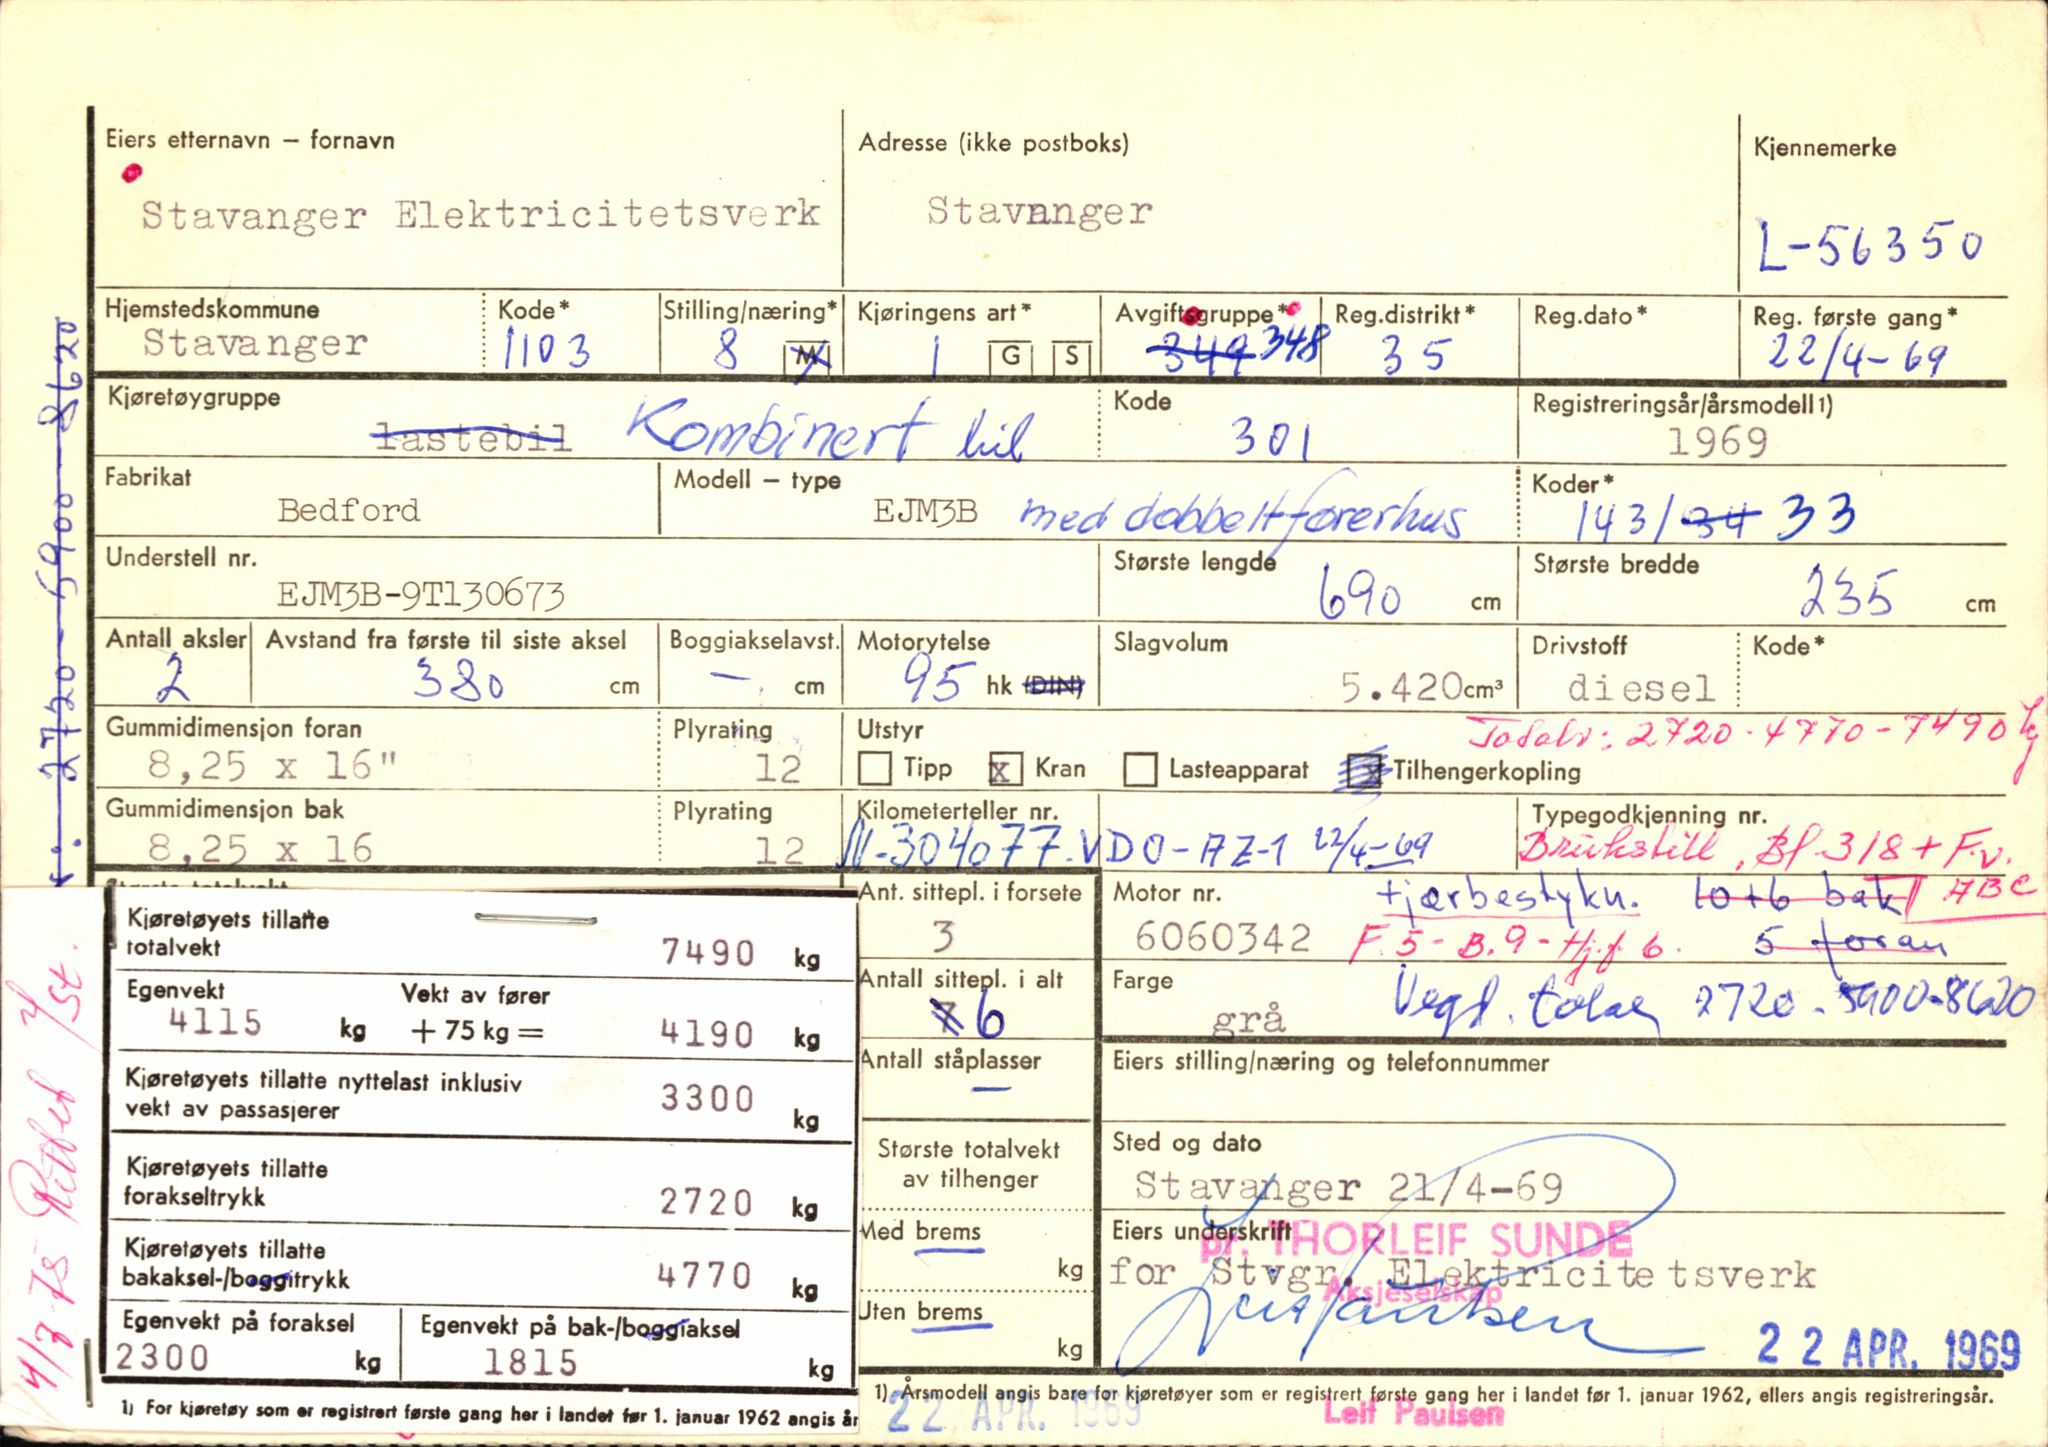 Eiers etternavn – fornavn
Stavanger Elektricitetsverk
Adresse (ikke postboks)
Stavnnger
Kjennemerke
L-56350
Hjemstedskommune
Stavanger
Kode*
1103
Stilling/næring*
8 M
Kjøringens art*
1 G S
Avgiftsgruppe*
349 348
Reg.distrikt*
35
Reg.dato*
Reg. første gang*
22/4-69
Kjøretøygruppe
lastebil Kombinert bil
Kode
301
Registreringsår/årsmodell1)
1969
Fabrikat
Bedford
Modell – type
EJM3B med dobbelt førerhus
Koder*
143/34 33
Understell nr.
EJM3B-9T130673
Største lengde
690 cm
Største bredde
235 cm
Antall aksler
2
Avstand fra første til siste aksel
380 cm
Boggiakselavst.
– cm
Motorytelse
95 hk (DIN)
Slagvolum
5.420 cm³
Drivstoff
diesel
Kode*
Gummidimensjon foran
8,25 x 16"
Plyrating
12
Utstyr
Totalv: 2720-4770-7490 kg
Tipp x Kran Lasteapparat x Tilhengerkopling
Gummidimensjon bak
8,25 x 16
Plyrating
12
Kilometerteller nr.
N-304077.VDO-AZ-1 22/4-69
Typegodkjenning nr.
Brukstill, Bf 318 + F.v.
ABC
Største totalvekt
Kjøretøyets tillatte
totalvekt
7490 kg
Egenvekt
4115 kg
Vekt av fører
+ 75 kg =
4190 kg
Kjøretøyets tillatte nyttelast inklusiv
vekt av passasjerer
3300 kg
Kjøretøyets tillatte
forakseltrykk
2720 kg
Kjøretøyets tillatte
bakaksel-/boggitrykk
4770 kg
Egenvekt på foraksel
2300 kg
Egenvekt på bak-/boggiaksel
1815 kg
1) For kjøretøy som er registrert første gang her i landet før 1. januar 1962 angis år
Ant. sittepl. i forsete
3
Motor nr.
6060342
Fjærbestykn. 10+6 bak
F.5-B.9-Hj.f 6. 5 foran
Antall sittepl. i alt
7 6
Farge
grå
Vegd. 2720-5900-8620
Antall ståplasser
–
Eiers stilling/næring og telefonnummer
Største totalvekt
av tilhenger
Med brems
kg
Uten brems
kg
Sted og dato
Stavanger 21/4-69
Eiers underskrift
pr. THORLEIF SUNDE
for Stvgr. Elektricitetsverk
Aksjeselskap
Leif Paulsen
22 APR. 1969
1) Årsmodell angis bare for kjøretøyer som er registrert første gang her i landet før 1. januar 1962, ellers angis registreringsår.
22 APR. 1969
Leif Paulsen
2720-5900-8620